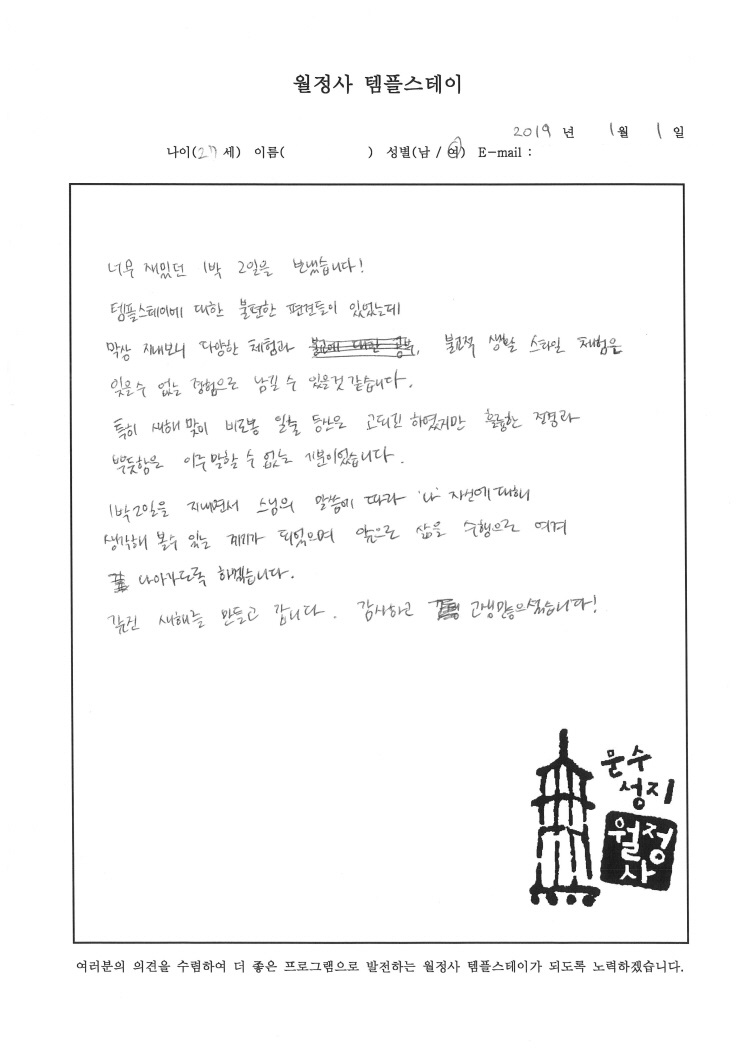 월정사 템플스테이
2019 년 1월 1 일
나이(27 세) 이름( ) 성별(남 / 여) E-mail :
너무 재밌던 1박 2일을 보냈습니다!
템플스테이에 대한 불편한 편견들이 있었는데
막상 지내보니 다양한 체험과 불교에 대한 공부, 불교적 생활 스타일 체험은
잊을수 없는 경험으로 남길 수 있을것 같습니다.
특히 새해 맞이 비로봉 일출 등산은 고되긴 하였지만 훌륭한 전경과
뿌듯함은 이루 말할 수 없는 기분이었습니다.
1박2일을 지내면서 스님의 말씀에 따라 '나' 자신에 대해
생각해 볼수 있는 계기가 되었으며 앞으로 삶을 수행으로 여겨
나아가도록 하겠습니다.
값진 새해를 만들고 갑니다. 감사하고 고생많으셨습니다!
문수
성지
월정
사
여러분의 의견을 수렴하여 더 좋은 프로그램으로 발전하는 월정사 템플스테이가 되도록 노력하겠습니다.